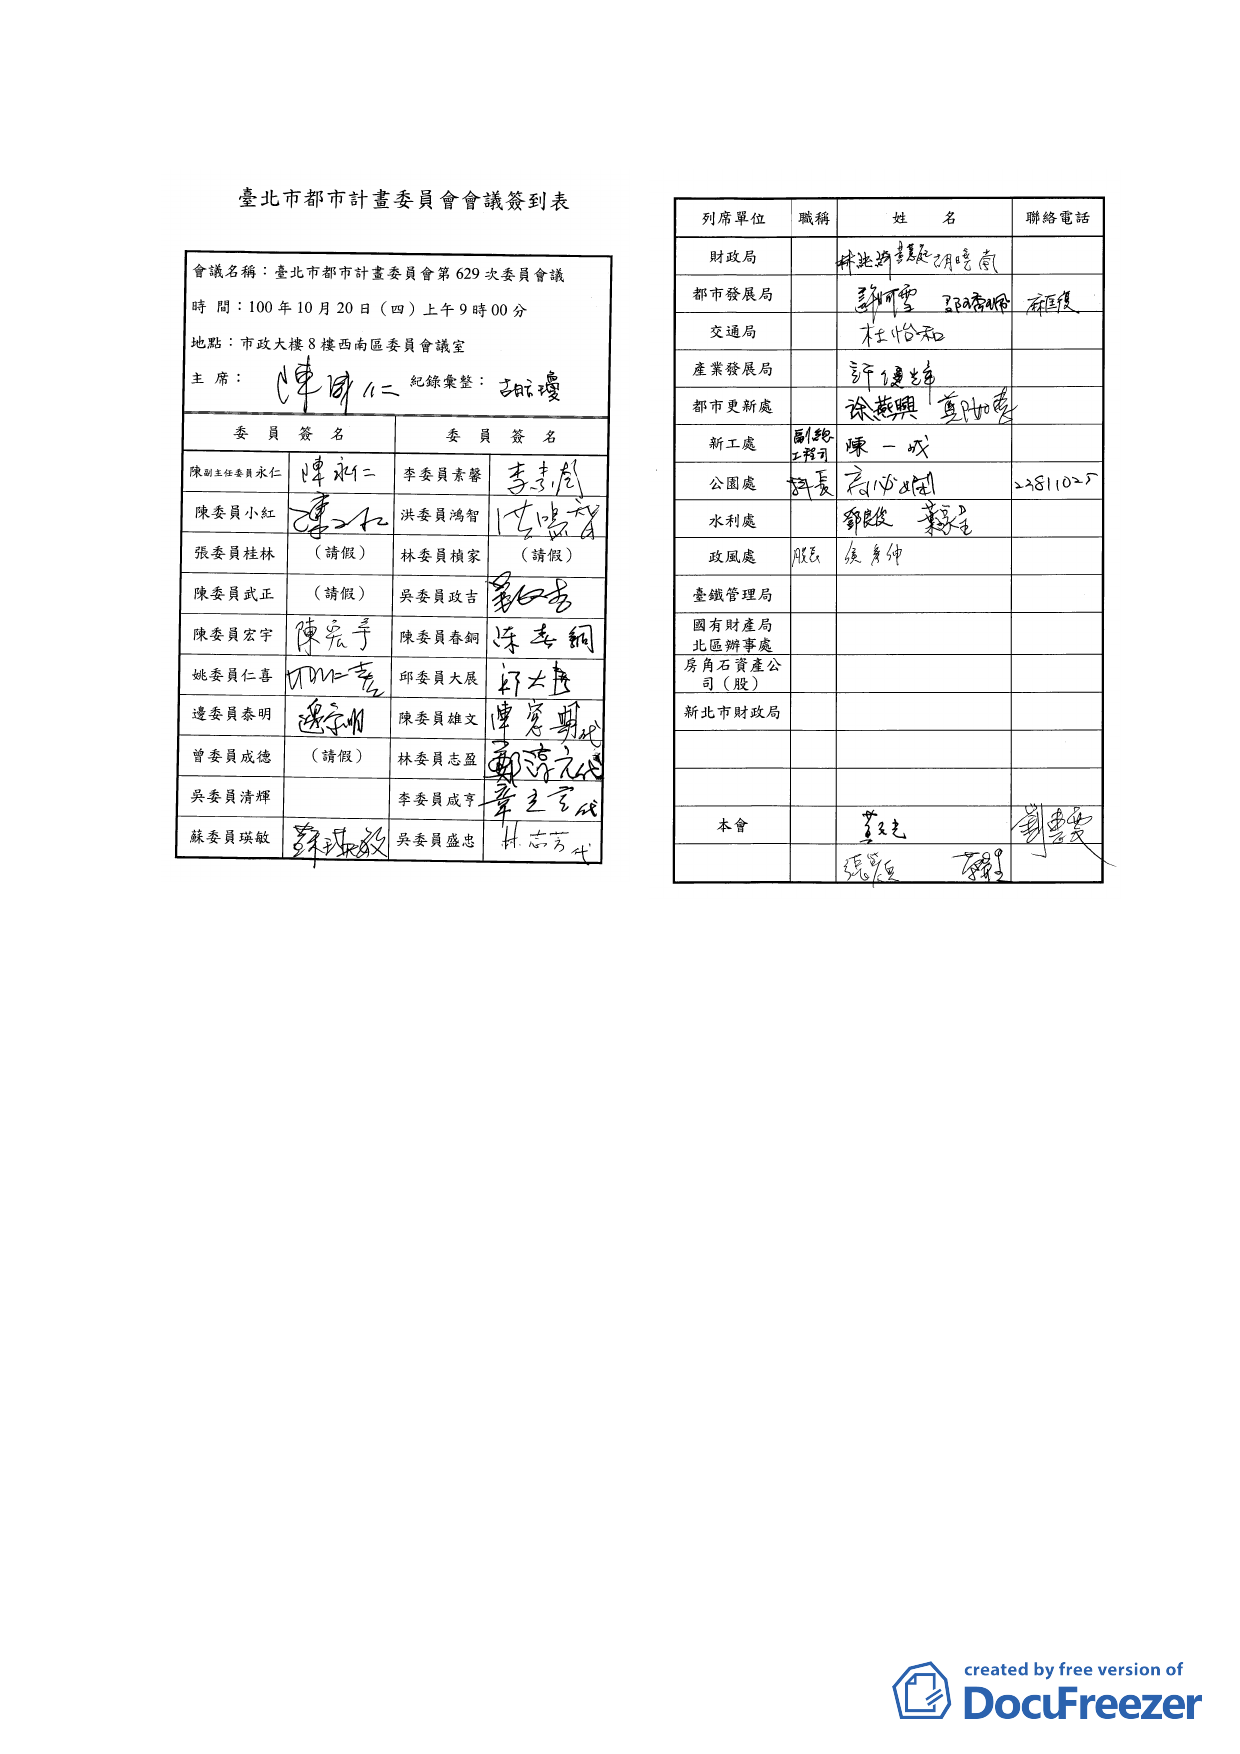 臺北市都市計畫委員會會議簽到表
會議名稱：臺北市都市計畫委員會第 629 次委員會議
時 間：100 年 10 月 20 日（四）上午 9 時 00 分
地點：市政大樓 8 樓西南區委員會議室
主 席： 紀錄彙整：
委 員 簽 名 委 員 簽 名
陳副主任委員永仁 陳永仁 李委員素馨 李素馨
陳委員小紅 陳小紅 洪委員鴻智 洪鴻智
張委員桂林 （請假） 林委員楨家 （請假）
陳委員武正 （請假） 吳委員政吉
陳委員宏宇 陳宏宇 陳委員春銅 陳春銅
姚委員仁喜 姚仁喜 邱委員大展 邱大展
邊委員泰明 邊泰明 陳委員雄文 代
曾委員成德 （請假） 林委員志盈 鄭淳元代
吳委員清輝 李委員咸亨 章立言代
蘇委員瑛敏 蘇瑛敏 吳委員盛忠 林志芳代
列席單位 職稱 姓 名 聯絡電話
財政局
都市發展局
交通局 杜怡和
產業發展局
都市更新處 徐燕興
新工處 副總工程司 陳一成
公園處 科長 23811025
水利處 鄧良俊
政風處 股長
臺鐵管理局
國有財產局
北區辦事處
房角石資產公
司（股）
新北市財政局
本會
created by free version of
DocuFreezer